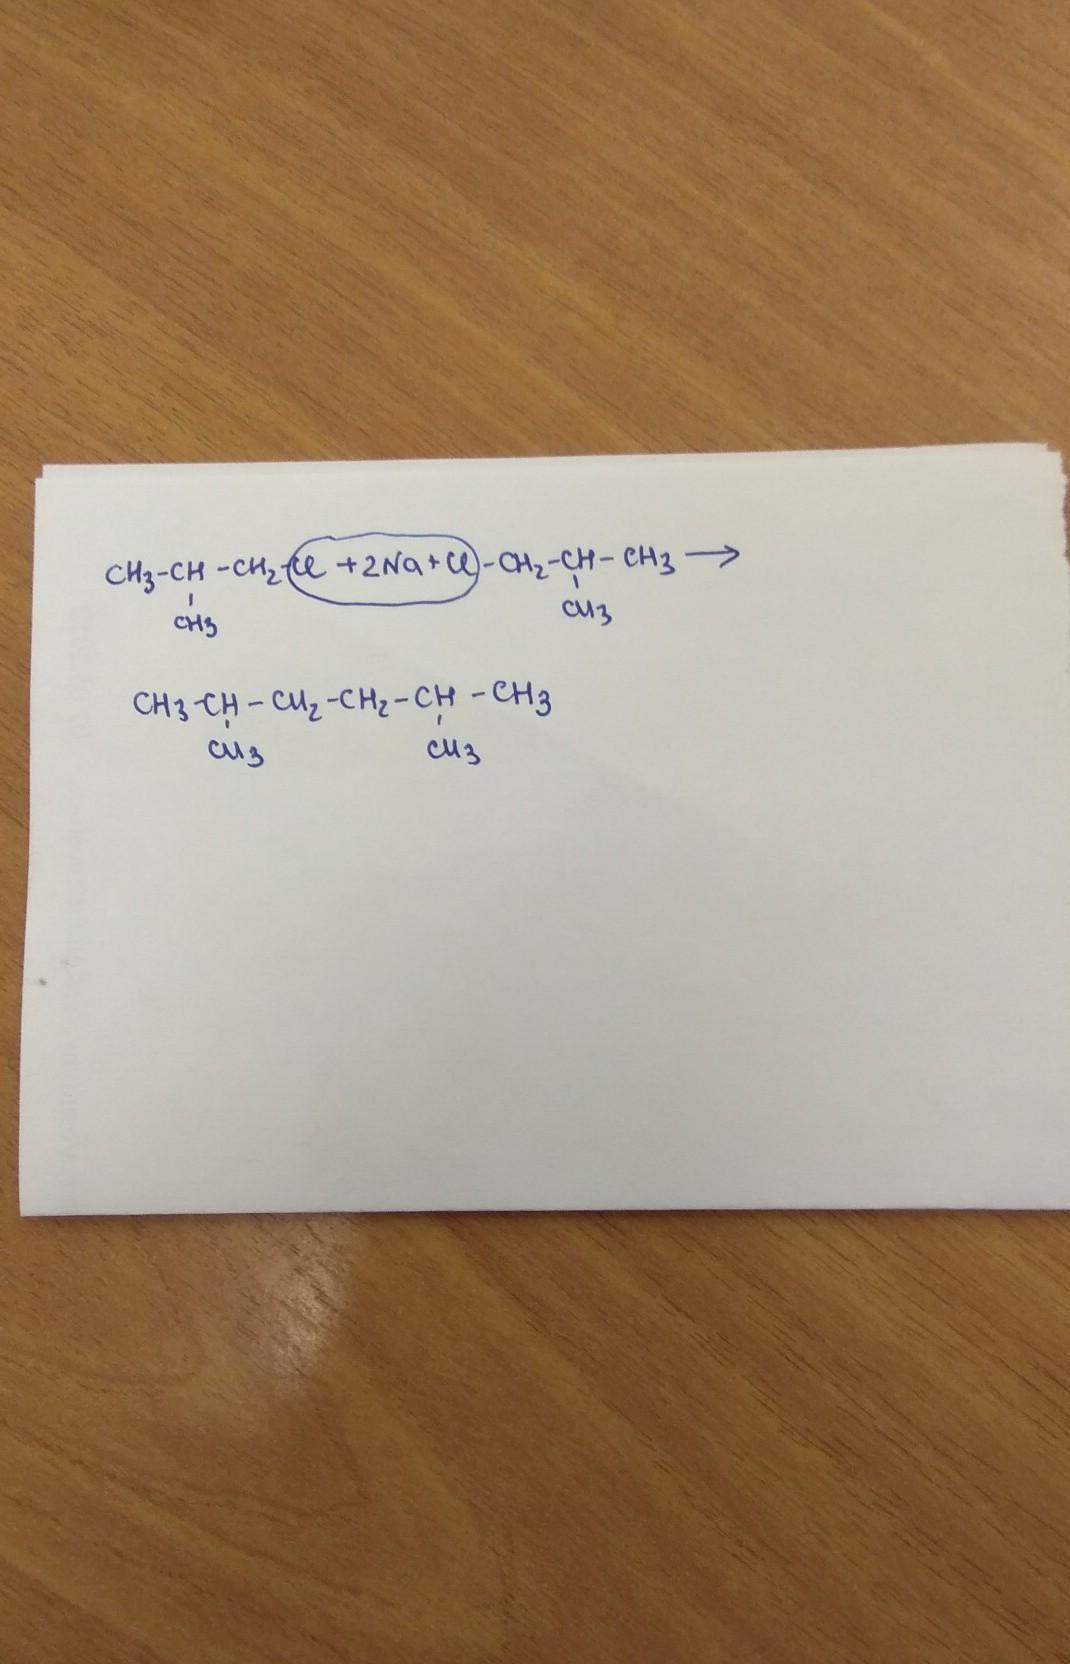 CH3-CH-CH2-Cl+2Na+Cl-CH2-CH-CH3→
CH3 CH3
CH3-CH-CH2-CH2-CH-CH3
CH3 CH3